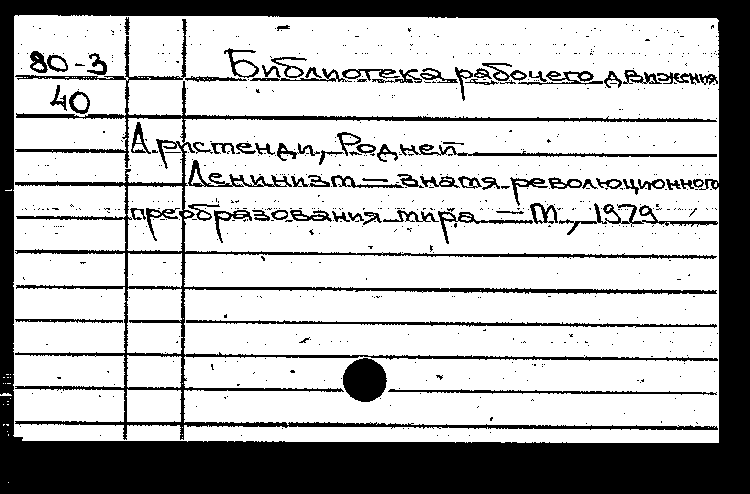 80-3 Библиотека рабочего движения
40
Аристенди, Родней
Ленинизм — знамя революционного
преобразования мира — М, 1979